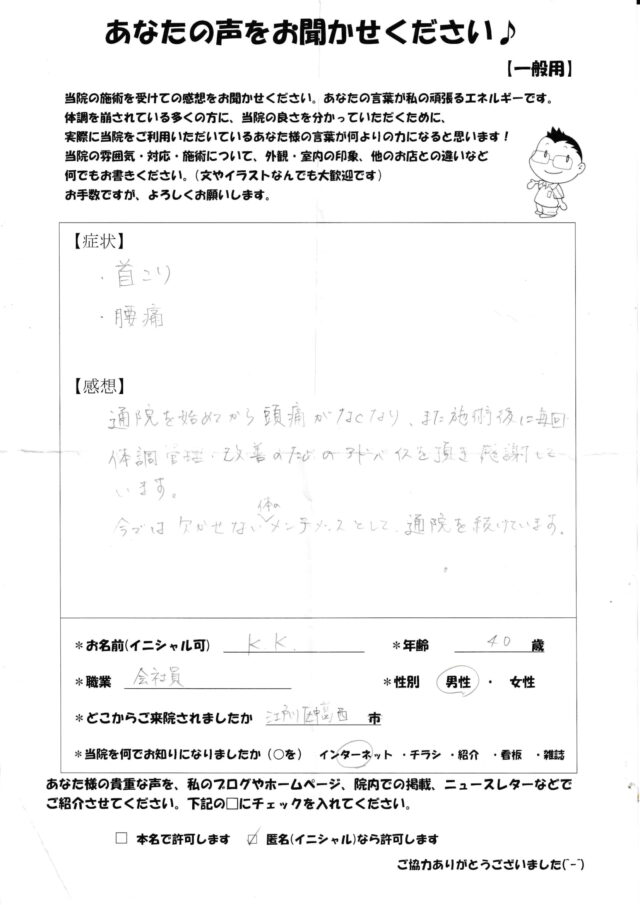 あなたの声をお聞かせください♪
【一般用】
当院の施術を受けての感想をお聞かせください。あなたの言葉が私の頑張るエネルギーです。
体調を崩されている多くの方に、当院の良さを分かっていただくために、
実際に当院をご利用いただいているあなた様の言葉が何よりの力になると思います！
当院の雰囲気・対応・施術について、外観・室内の印象、他のお店との違いなど
何でもお書きください。(文やイラストなんでも大歓迎です)
お手数ですが、よろしくお願いします。
【症状】
・首こり
・腰痛
【感想】
通院を始めてから頭痛がなくなり、また施術後に毎回
体調管理・改善のためのアドバイスを頂き感謝して
います。
今では欠かせない体のメンテナンスとして、通院を続けています。
＊お名前(イニシャル可) K K. ＊年齢 40 歳
＊職業 会社員 ＊性別 男性 ・ 女性
＊どこからご来院されましたか 江戸川区中葛西 市
＊当院を何でお知りになりましたか（○を） インターネット ・チラシ ・紹介 ・看板 ・雑誌
あなた様の貴重な声を、私のブログやホームページ、院内での掲載、ニュースレターなどで
ご紹介させてください。下記の□にチェックを入れてください。
□ 本名で許可します ☑ 匿名(イニシャル)なら許可します
ご協力ありがとうございました(^-^)